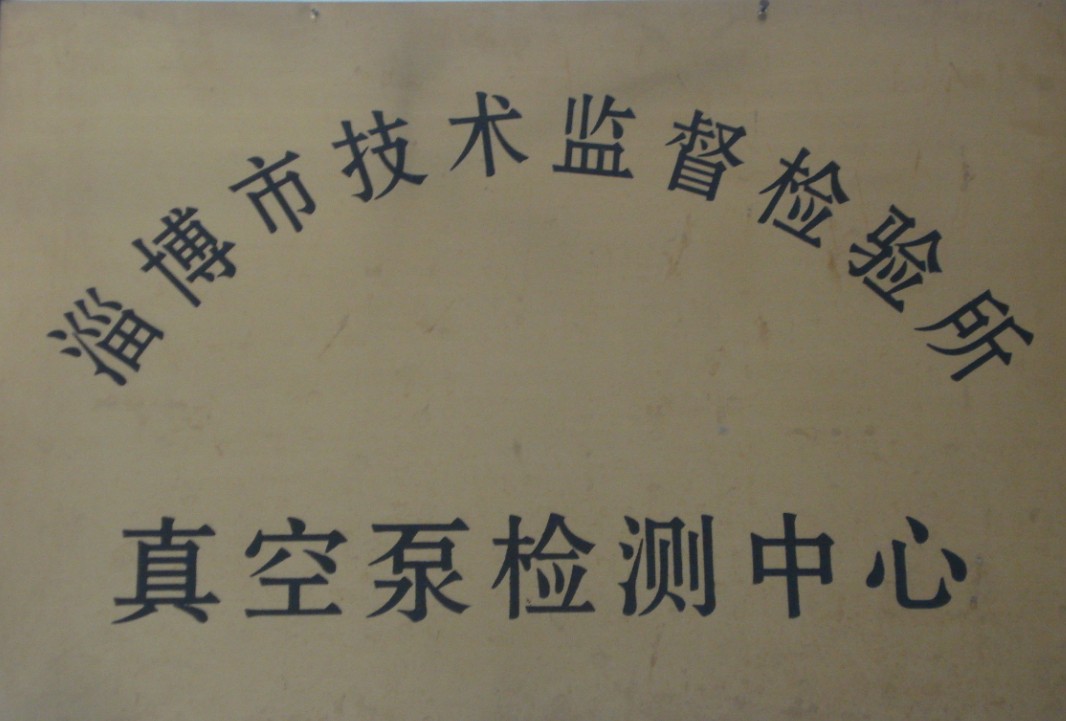 淄博市技术监督检验所
真空泵检测中心